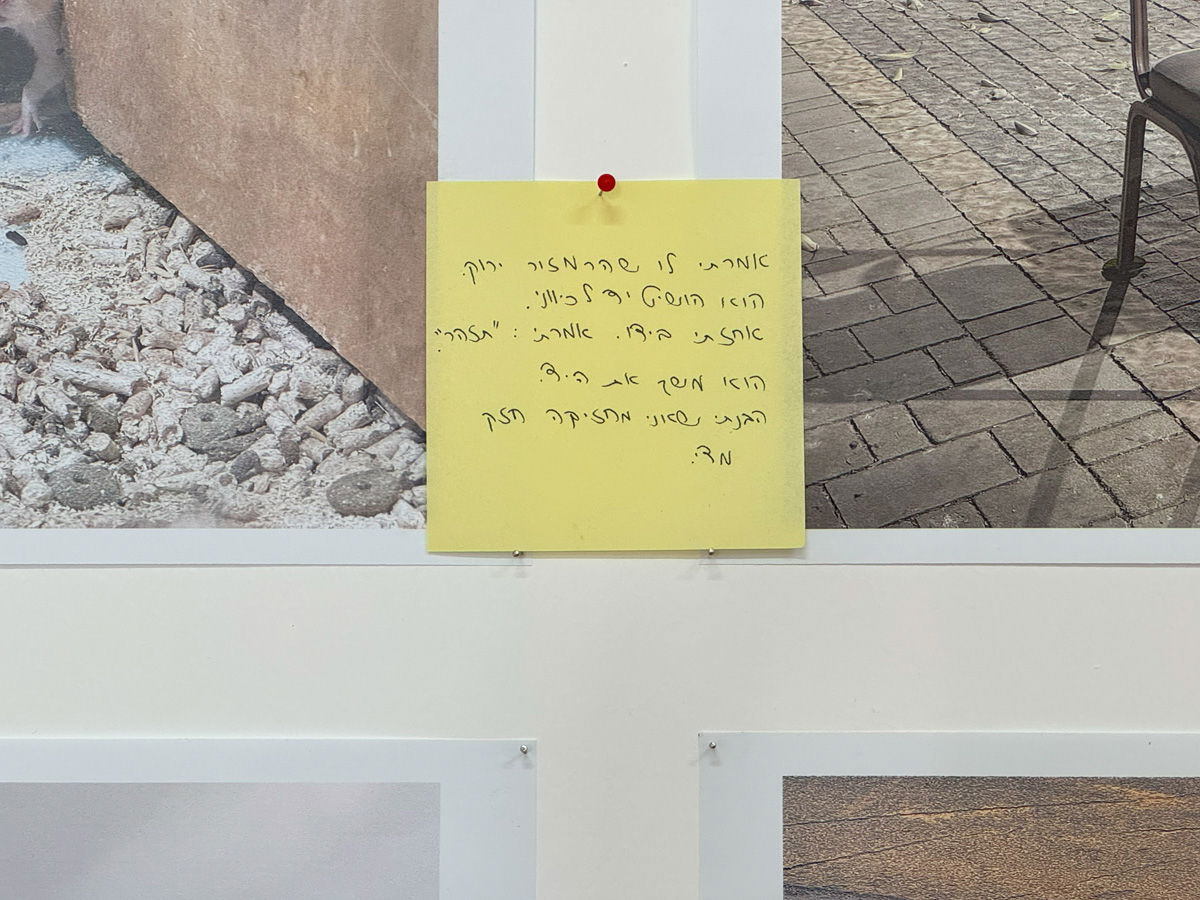 אמרתי לו שהרמזור ירוק.
הוא הושיט יד לכיווני.
אחזתי בידו. אמרתי: "תזהר".
הוא משך את היד.
הבנתי שאני מחזיקה חזק
מדי.